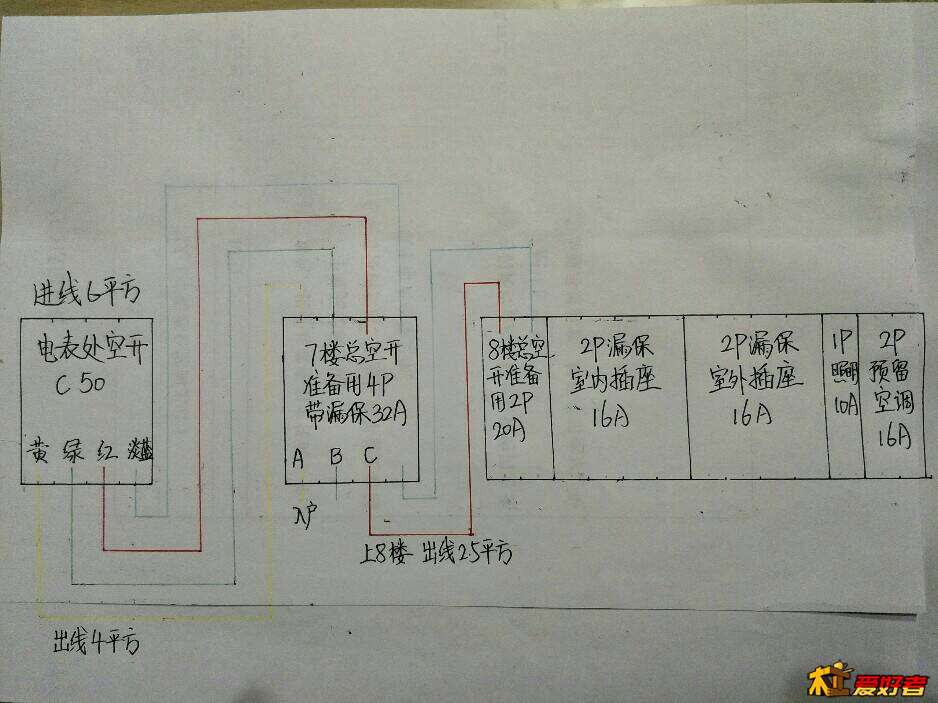 进线6平方
电表处空开
C 50
黄 绿 红 淡蓝
出线4平方
7楼总空开
准备用4P
带漏保32A
A B C
入户
上8楼 出线25平方
8楼总空
开准备
用2P
20A
2P漏保
室内插座
16A
2P漏保
室外插座
16A
1P
照明
10A
2P
预留
空调
16A
爱好者